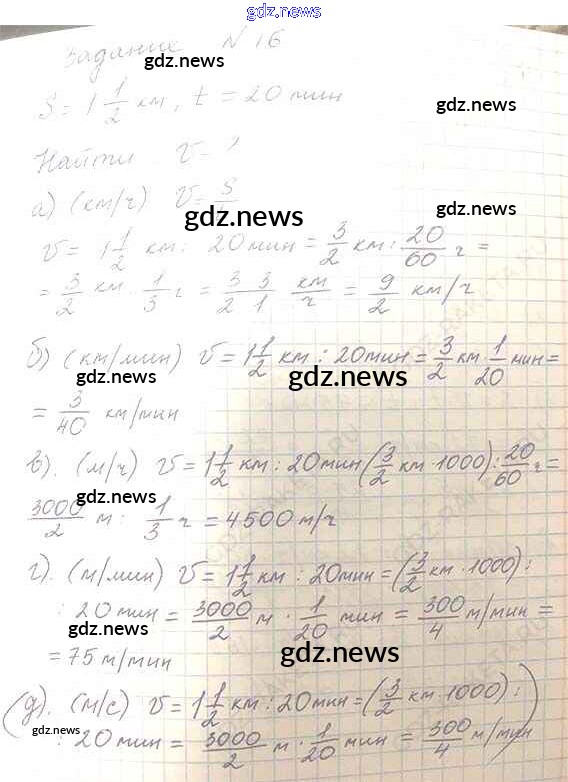 gdz.news
Задание N 16
gdz.news
S = 1 1/2 км, t = 20 мин
gdz.news
Найти v = ?
а) (км/ч) v = S
gdz.news
v = 1 1/2 км : 20 мин = 3/2 км : 20/60 ч =
= 3/2 км · 1/3 ч = 3/2 3/1 км/ч = 9/2 км/ч
б) (км/мин) v = 1 1/2 км : 20 мин = 3/2 км · 1/20 мин =
gdz.news
gdz.news
= 3/40 км/мин
в). (м/ч) v = 1 1/2 км : 20 мин (3/2 км · 1000) : 20/60 ч =
gdz.news
gdz.news
3000/2 м : 1/3 ч = 4500 м/ч
г). (м/мин) v = 1 1/2 км : 20 мин = (3/2 км · 1000) :
: 20 мин = 3000/2 м · 1/20 мин = 300/4 м/мин =
gdz.news
= 75 м/мин
gdz.news
(д). (м/с) v = 1 1/2 км : 20 мин = (3/2 км · 1000) :
gdz.news
: 20 мин = 3000/2 м · 1/20 мин = 300/4 м/мин)